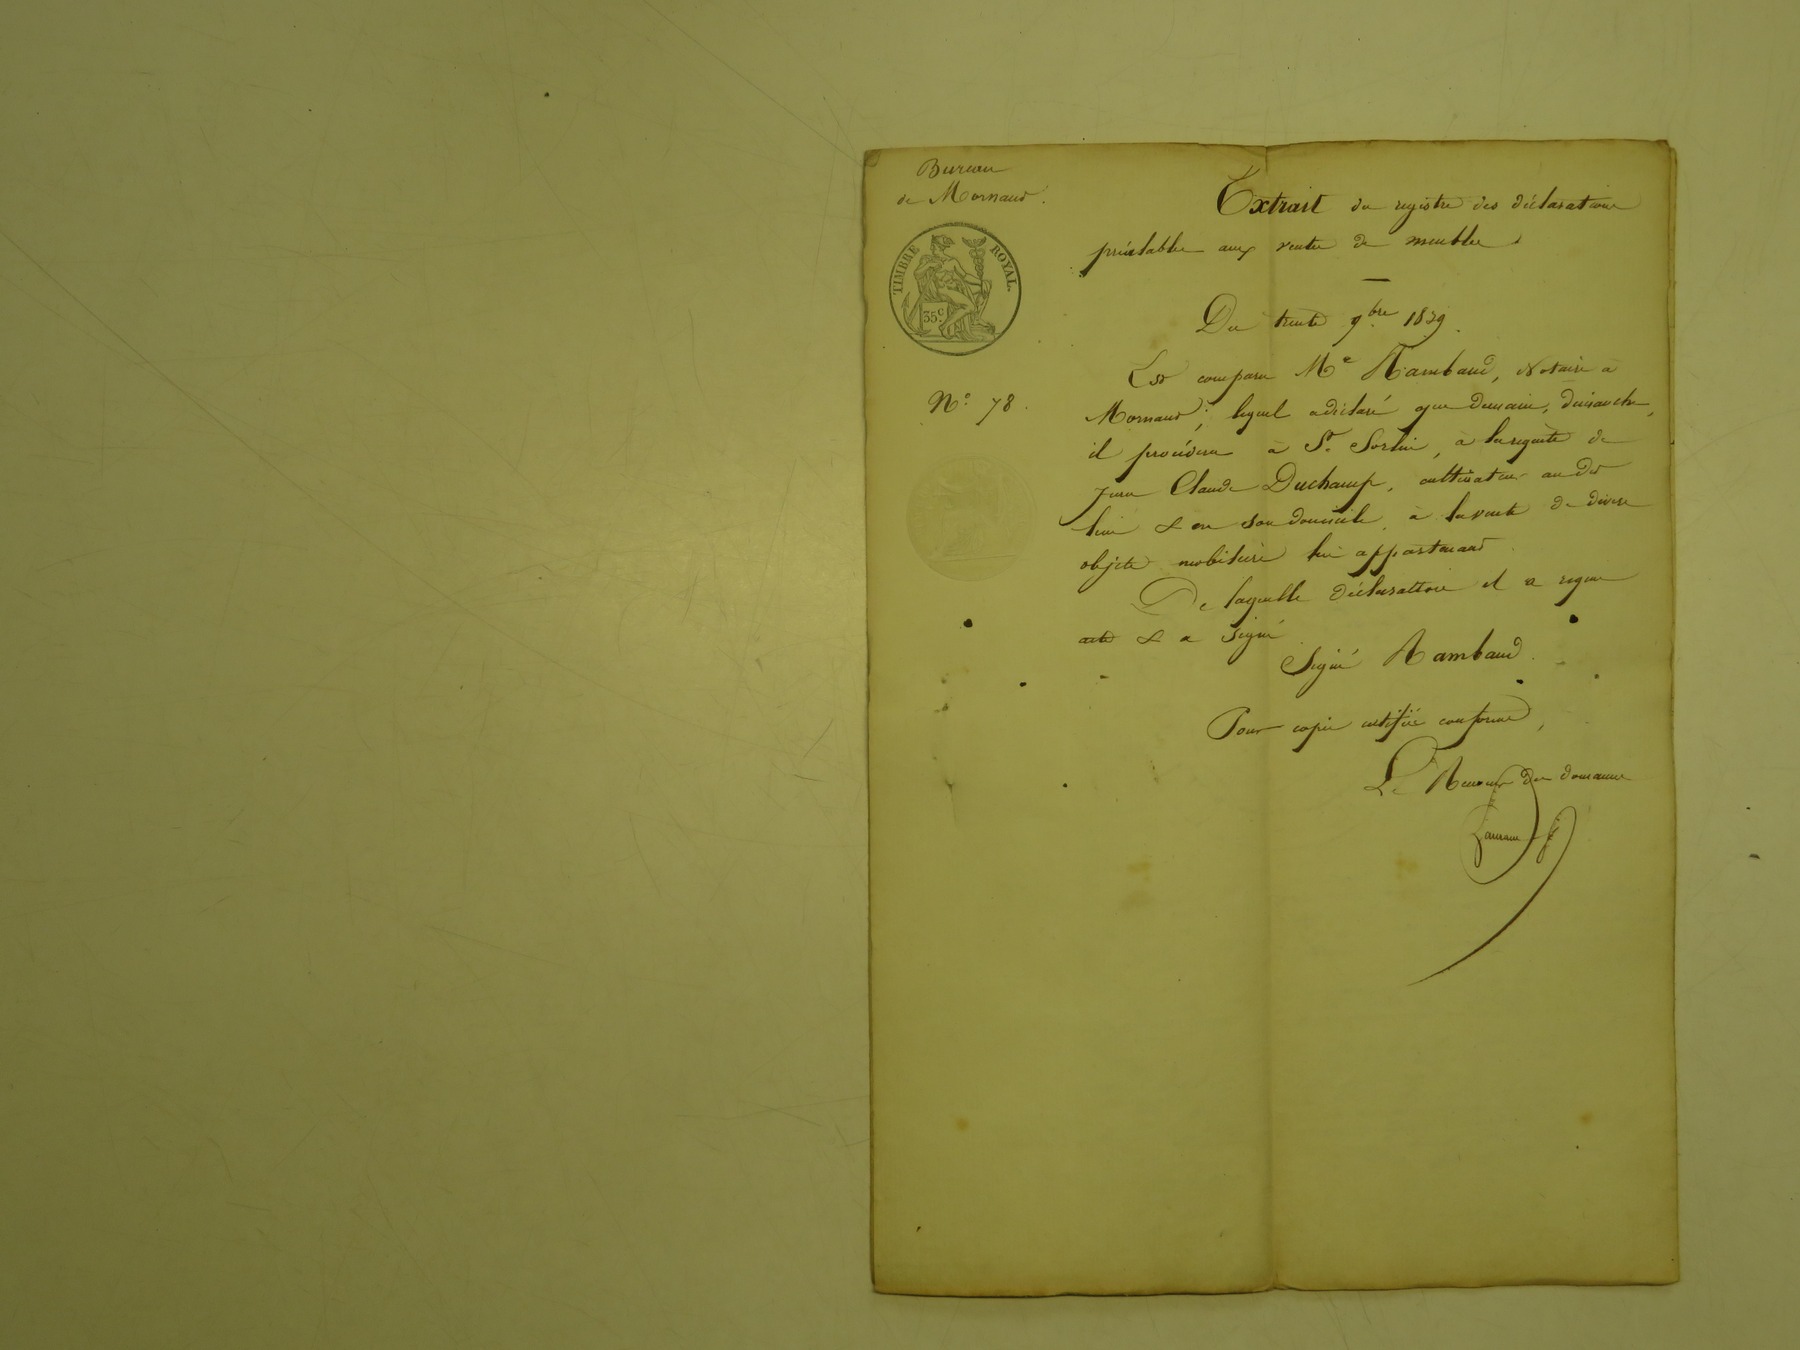 Bureau
de Mornant.
TIMBRE ROYAL.
35c.
N.º 78.
Extrait du registre des déclarations
préalables aux ventes de meubles.
Du trente 9bre 1839.
Est comparu Me Rambaud, Notaire à
Mornant; lequel a déclaré que demain, dimanche,
il procédera à St. Sorlin, à la requête de
Jean Claude Duchamp, cultivateur au dit
lieu & en son domicile, à la vente de divers
objets mobiliers lui appartenant.
De laquelle déclaration il a requis
acte & a signé
Signé Rambaud.
Pour copie certifiée conforme,
Le Receveur des domaines